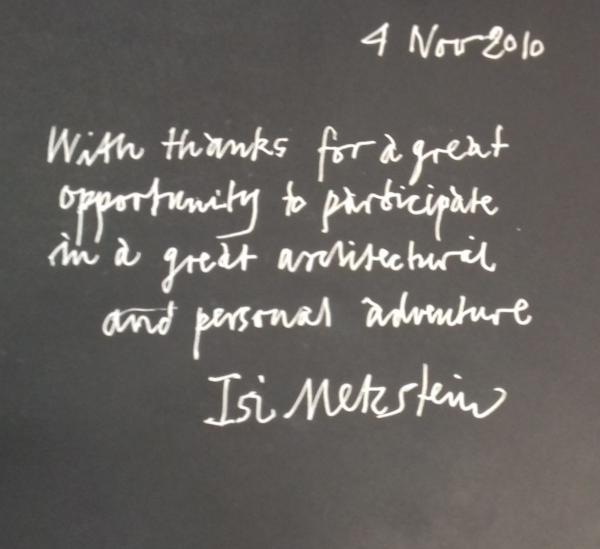 4 Nov 2010
With thanks for a great
opportunity to participate
in a great architectural
and personal adventure
Isi Metzstein